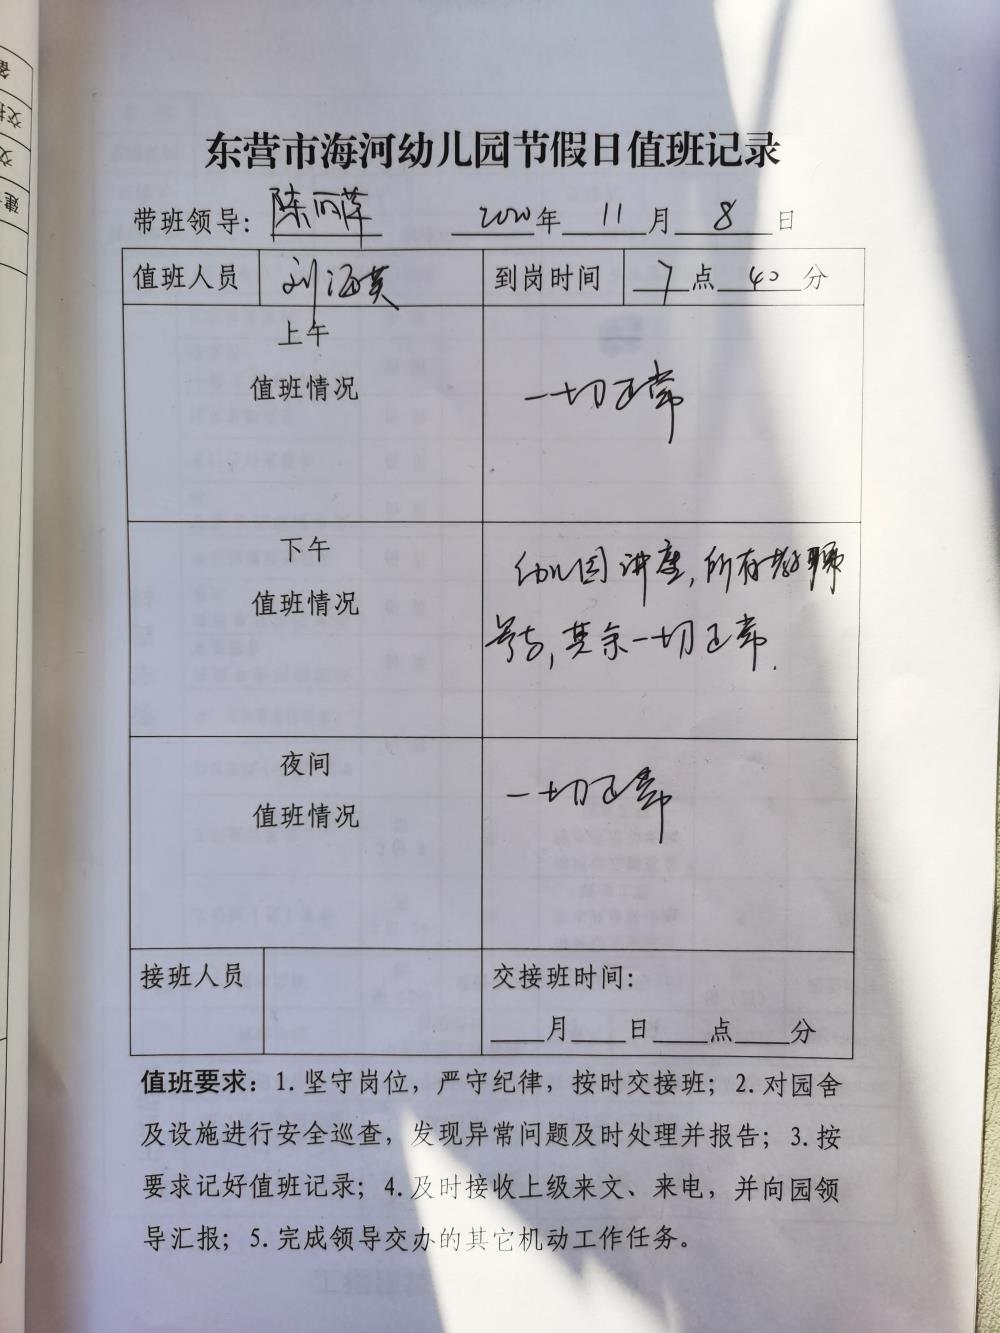 东营市海河幼儿园节假日值班记录
带班领导：陈丽萍 2020年 11 月 8 日
值班人员 刘海英 到岗时间 7 点 40 分
上午
值班情况
一切正常
下午
值班情况
幼儿园讲座，所有教职
其余一切正常.
夜间
值班情况
一切正常
接班人员 交接班时间：
月 日 点 分
值班要求：1. 坚守岗位，严守纪律，按时交接班；2. 对园舍
及设施进行安全巡查，发现异常问题及时处理并报告；3. 按
要求记好值班记录；4. 及时接收上级来文、来电，并向园领
导汇报；5. 完成领导交办的其它机动工作任务。